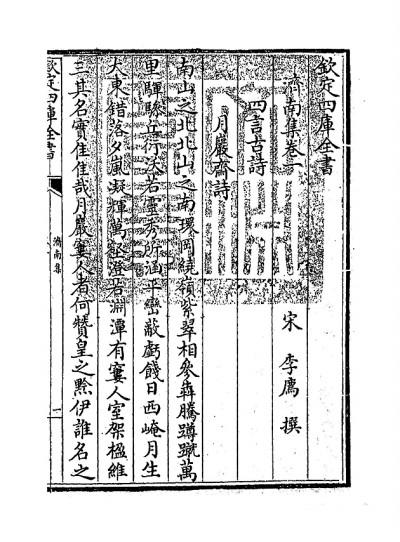 欽定四庫全書
濟南集卷一
宋 李廌 撰
四言古詩
月巖齋詩
南山之北北山之南環岡繞嶺紫翠相參犇騰蹲蹴萬
里驛騄丘行淡若靈秀所涵平巒敵虧餞日西崦月生
大東錯落夕嵐凝輝萬壑澄若淵潭有寠人室架楹維
三其名實隹隹哉月巖寠人者何贊皇之黥伊誰名之
欽定四庫全書
濟南集
一